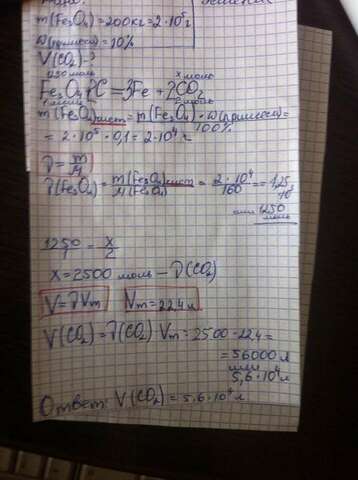 m(Fe₃O₄)=200кг=2·10⁵г
ω(примеси)=10%
V(CO₂)-?
1250 моль x моль
Fe₃O₄+2C=3Fe+2CO₂
1 моль 2 моль
m(Fe₃O₄)чист=m(Fe₃O₄)·ω(примеси)/100%=
=2·10⁵·0,1=2·10⁴г
ν=m/M
ν(Fe₃O₄)=m(Fe₃O₄)чист/M(Fe₃O₄)=2·10⁴/160=1,25
·10³
или 1250
моль
1250/1=x/2
x=2500 моль-ν(CO₂)
V=νVm Vm=22,4 л
V(CO₂)=ν(CO₂)·Vm=2500·22,4=
=56000 л
или
5,6·10⁴ л
Ответ: V(CO₂)=5,6·10⁴ л